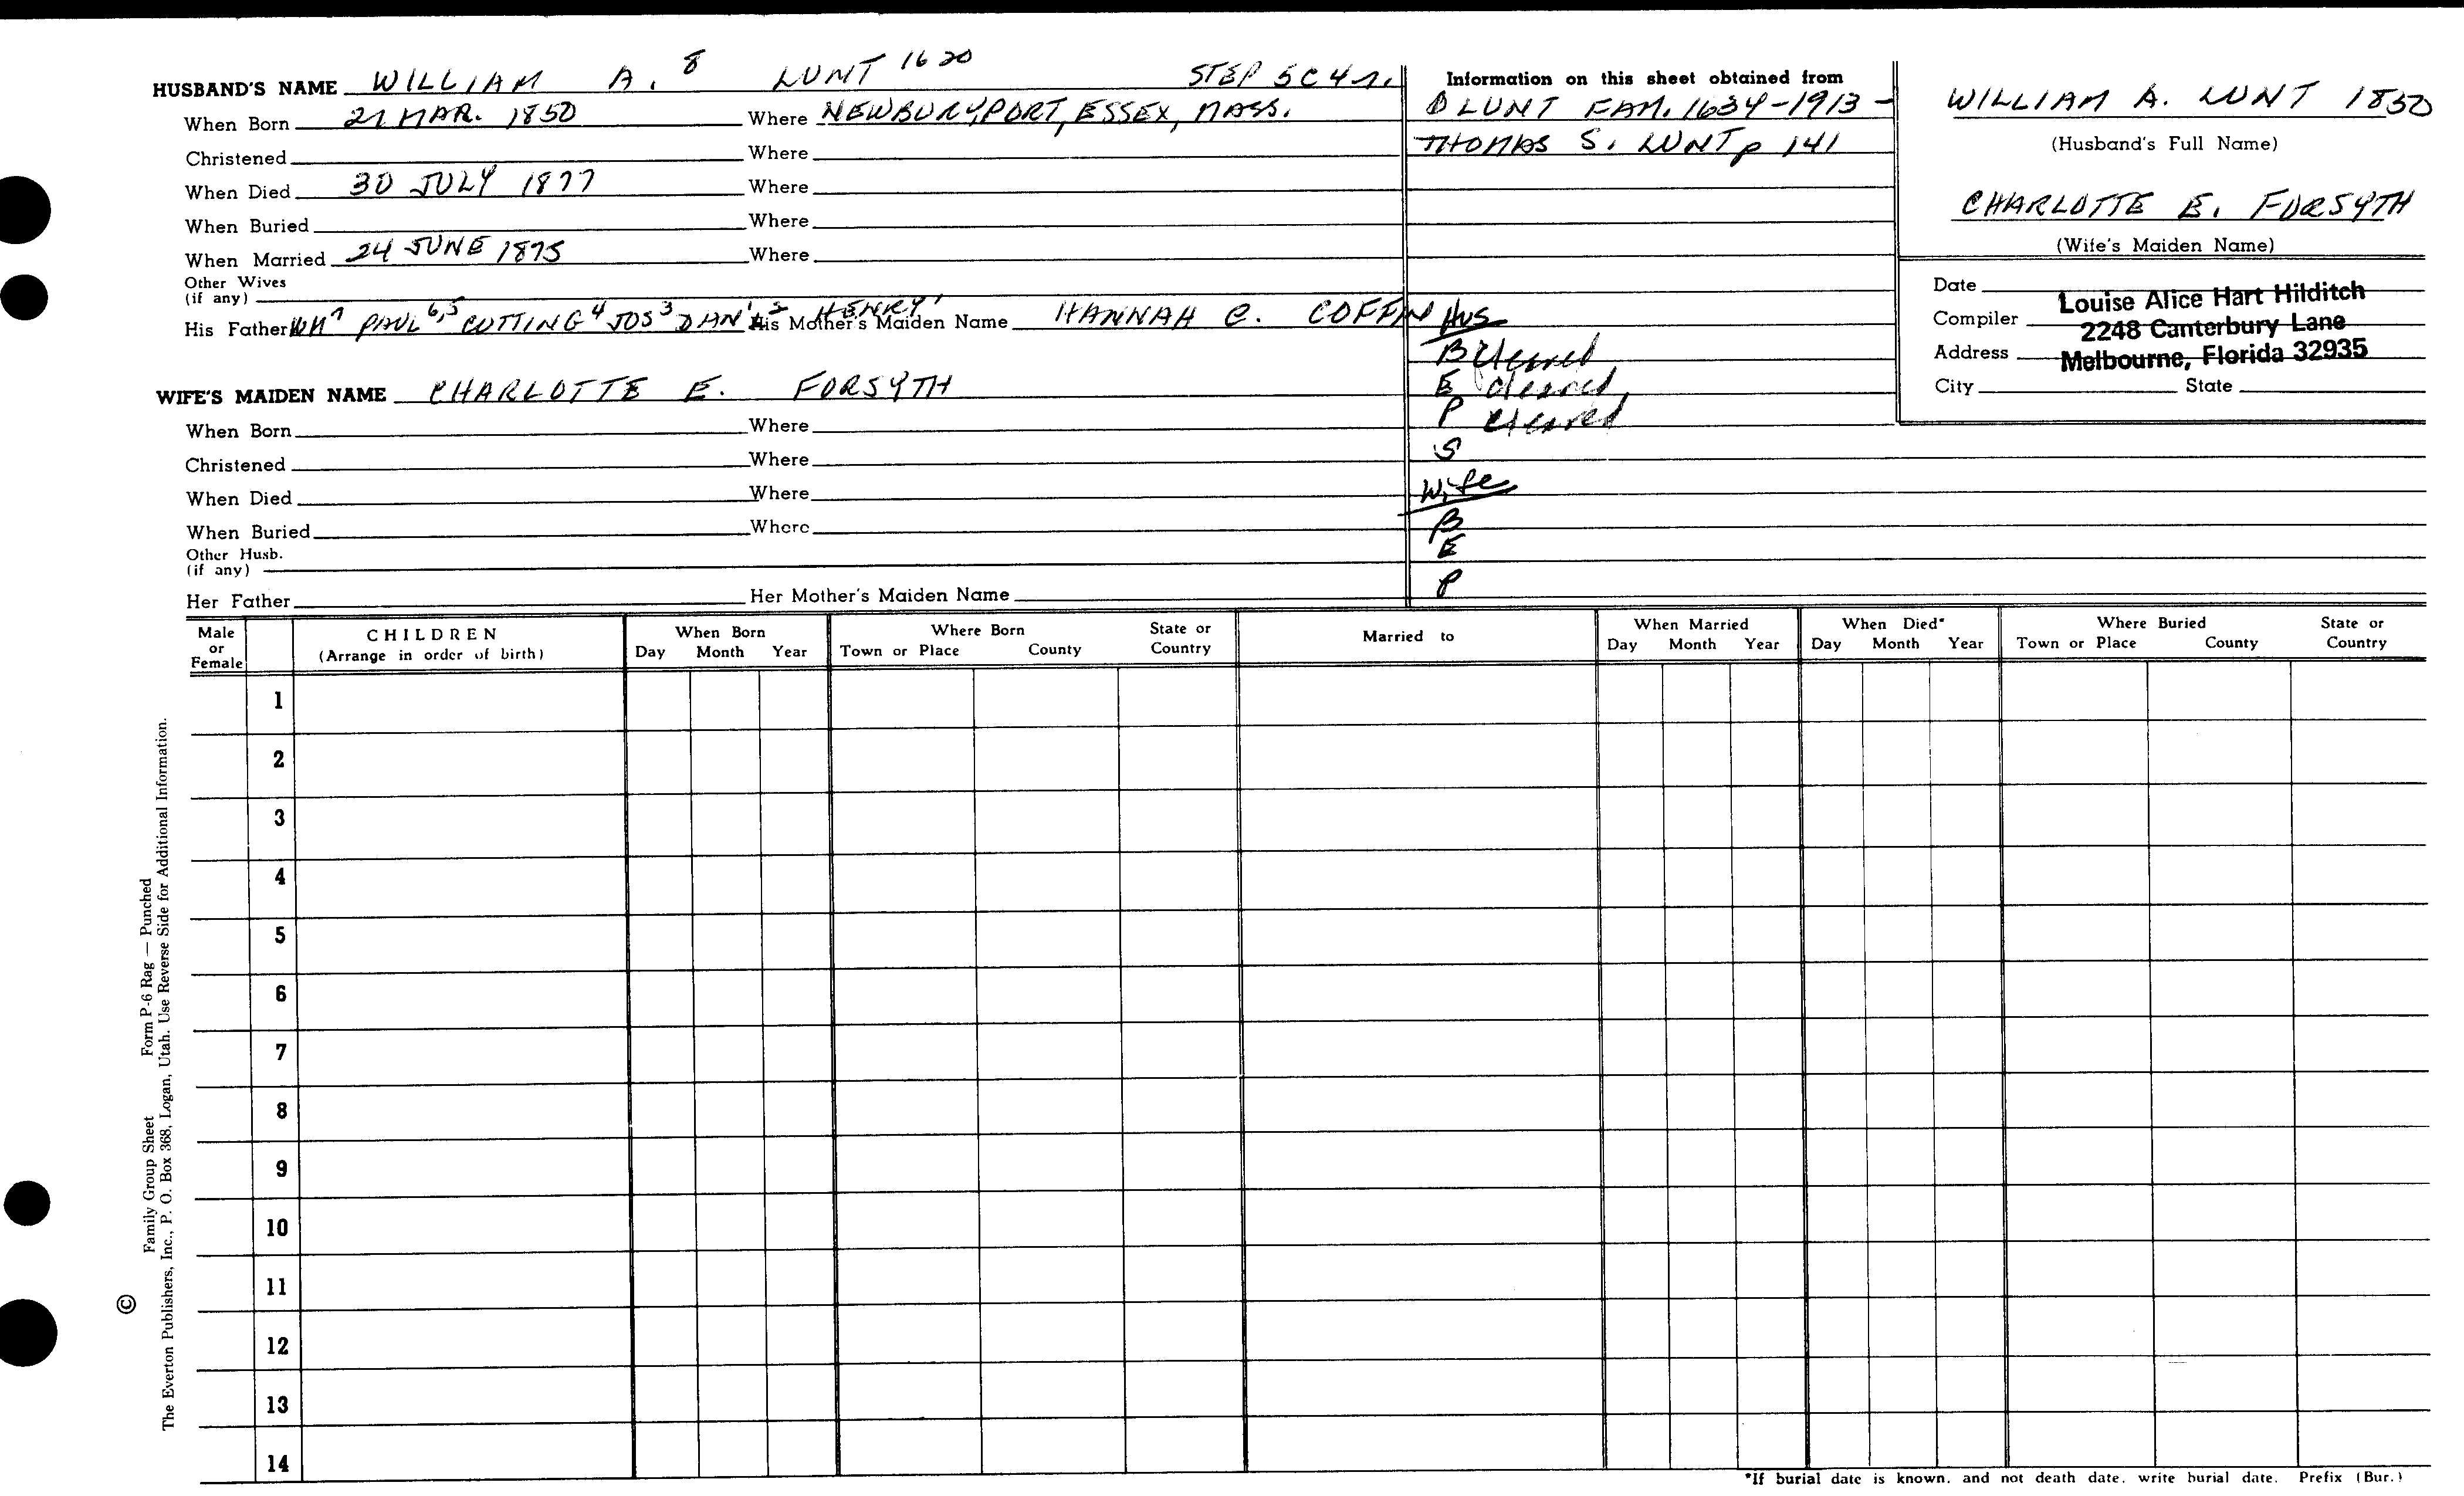 HUSBAND'S NAME WILLIAM A. 8 LUNT 1620 STEP 5C4
When Born 21 MAR. 1850 Where NEWBURYPORT, ESSEX, MASS.
Christened Where
When Died 30 JULY 1877 Where
When Buried Where
When Married 24 JUNE 1875 Where
Other Wives
(if any)
His Father WM 7 PAUL 6,5 CUTTING 4 JOS 3 DAN'L 2 HENRY 1 His Mother's Maiden Name HANNAH C. COFFIN
WIFE'S MAIDEN NAME CHARLOTTE E. FORSYTH
When Born Where
Christened Where
When Died Where
When Buried Where
Other Husb.
(if any)
Her Father Her Mother's Maiden Name
Information on this sheet obtained from
LUNT FAM. 1634-1913 -
THOMAS S. LUNT p 141
Hus
B cleared
E cleared
P cleared
S
Wife
B
E
P
WILLIAM A. LUNT 1850
(Husband's Full Name)
CHARLOTTE E. FORSYTH
(Wife's Maiden Name)
Date
Louise Alice Hart Hilditch
Compiler
2248 Canterbury Lane
Address Melbourne, Florida 32935
City State
Male or Female
CHILDREN
(Arrange in order of birth)
When Born
Day Month Year
Where Born
Town or Place County State or Country
Married to
When Married
Day Month Year
When Died*
Day Month Year
Where Buried
Town or Place County State or Country
1
2
3
4
5
6
7
8
9
10
11
12
13
14
*If burial date is known, and not death date, write burial date. Prefix (Bur.)
© Family Group Sheet Form P-6 Rag — Punched
The Everton Publishers, Inc., P. O. Box 368, Logan, Utah. Use Reverse Side for Additional Information.